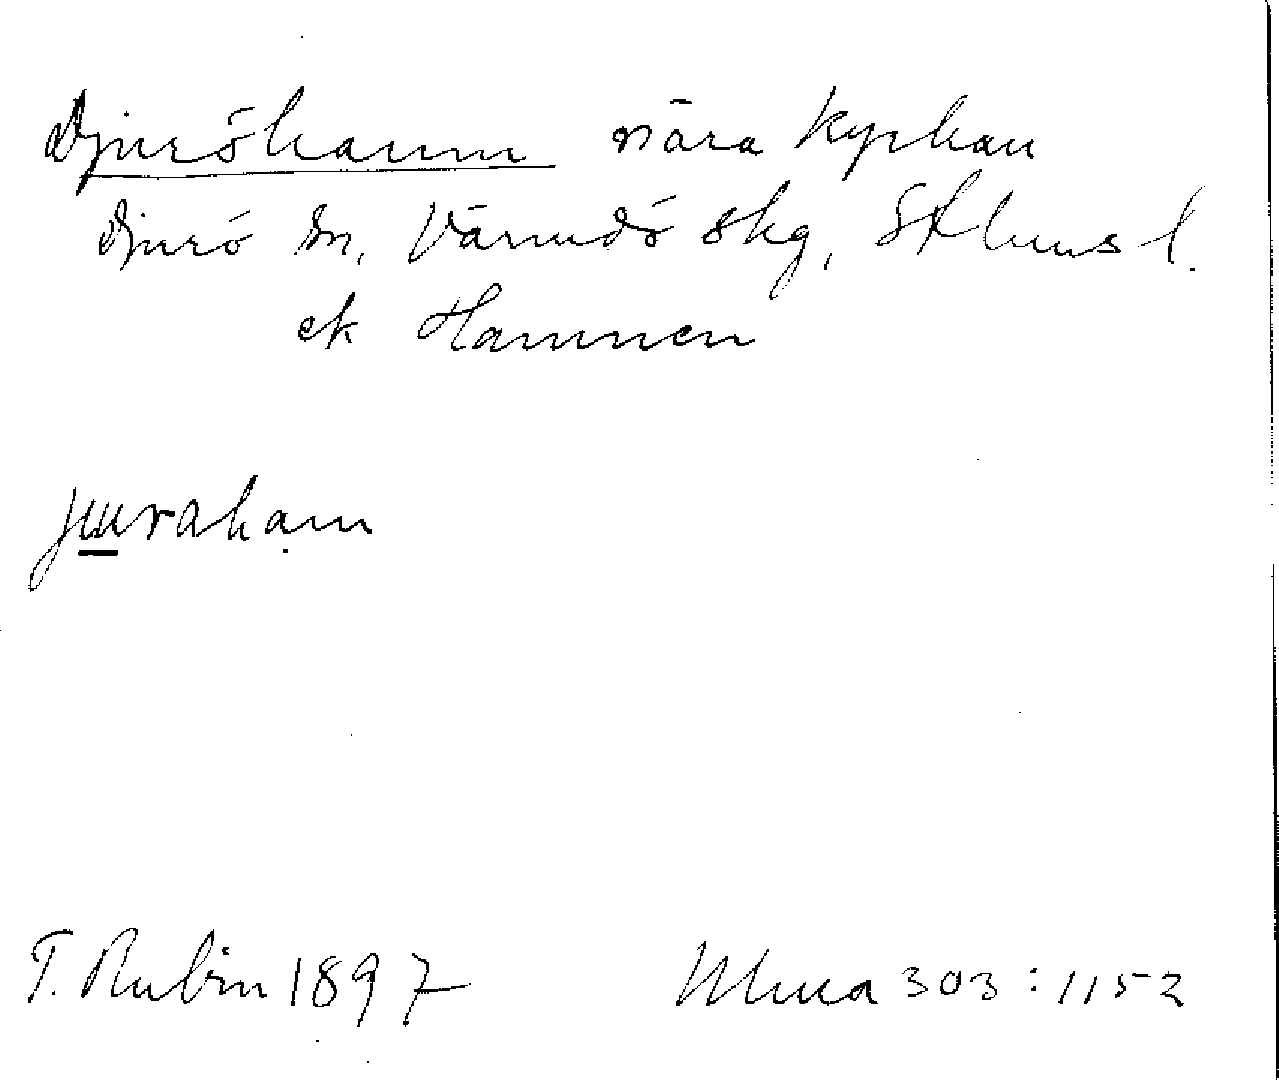 Djuröhamn nära kyrkan
Djurö sn, Värmdö skg, Sthlms l.
ek Hamnen
juuraham
T. Rubin 1897 Ulma 303:1152